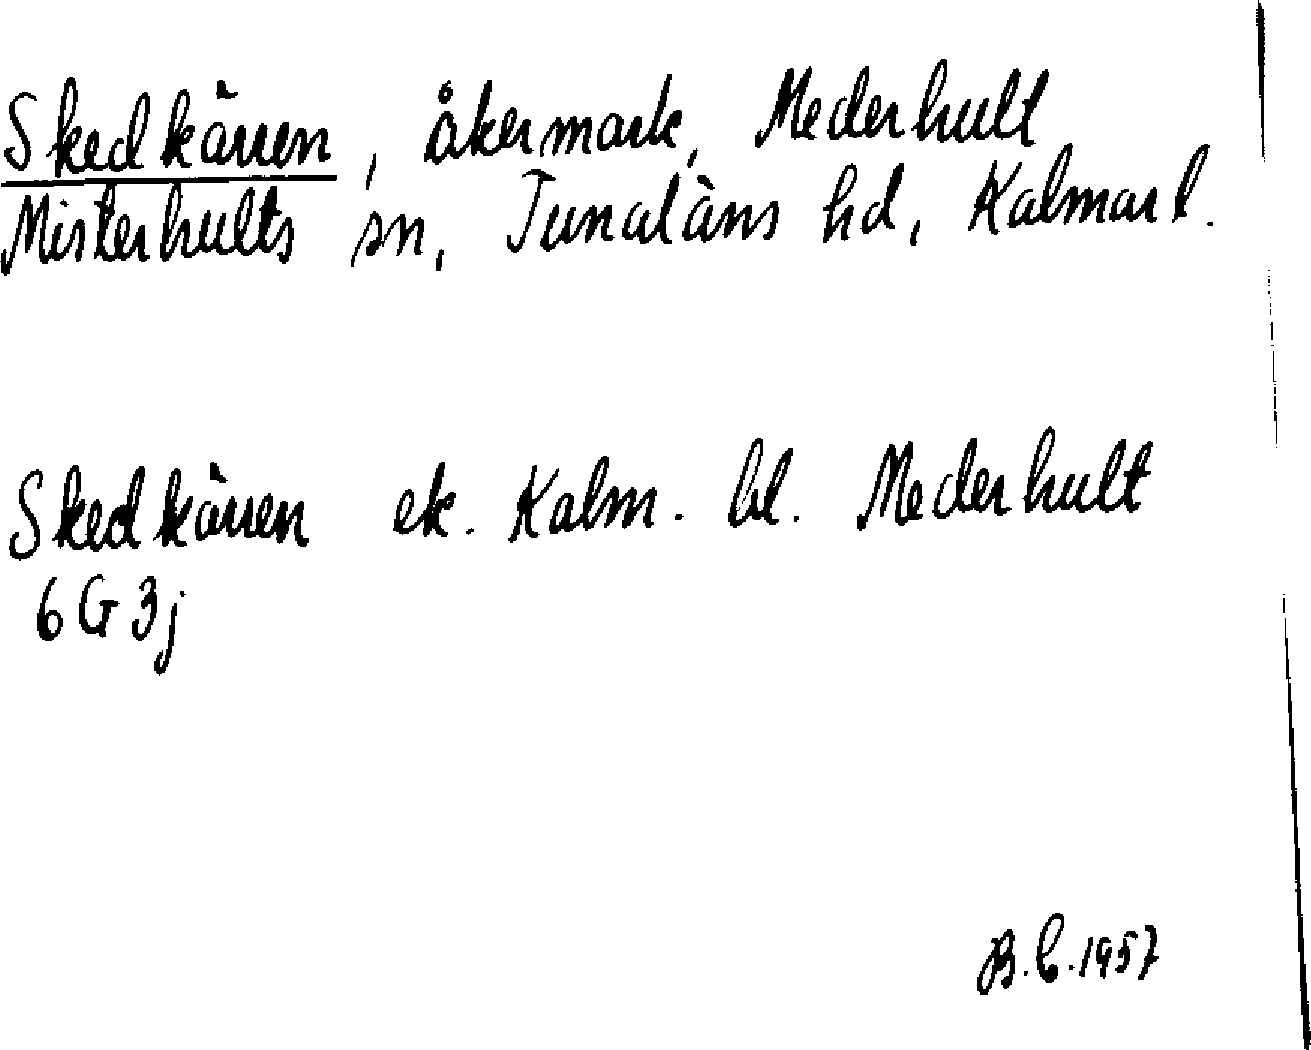 Skedkärren, åkermark, Mederhult
Misterhults sn, Tunaläns hd, Kalmar l.
Skedkärren ek. Kalm. bl. Mederhult
6G3j
B.C.1957